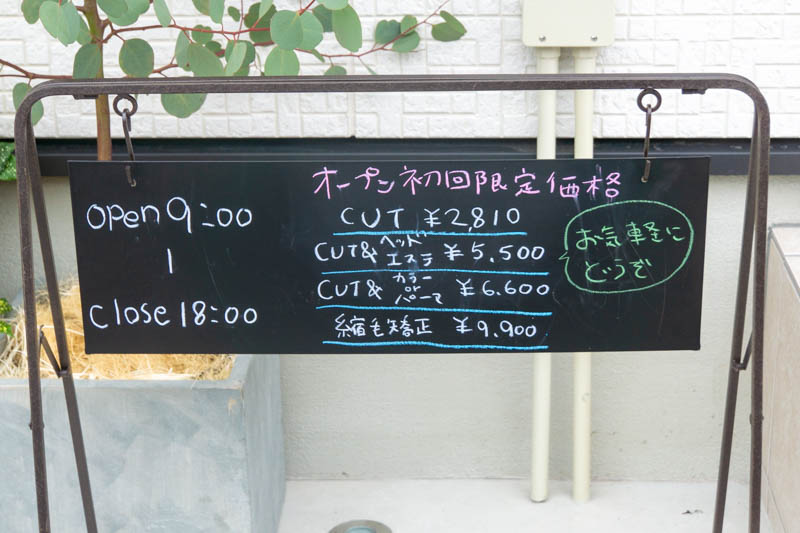 open 9:00
|
close 18:00
オープン初回限定価格
CUT ¥2,810
CUT&ヘッドエステ ¥5.500
CUT&カラーorパーマ ¥6.600
縮毛矯正 ¥9,900
お気軽に
どうぞ